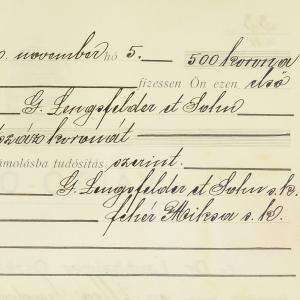 november hó 5. 500 korona
fizessen Ön ezen első
G. Lengsfelder et Sohn
száz koronát
ámolásba tudósítás szerint.
G. Lengsfelder et Sohn s. k.
Fehér Miksa s. k.